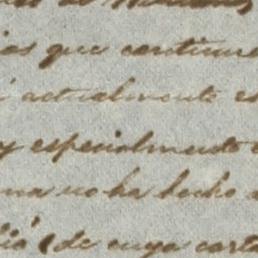 que continue
actualmente es
y especialmente
na no ha hecho
(de cuya carta